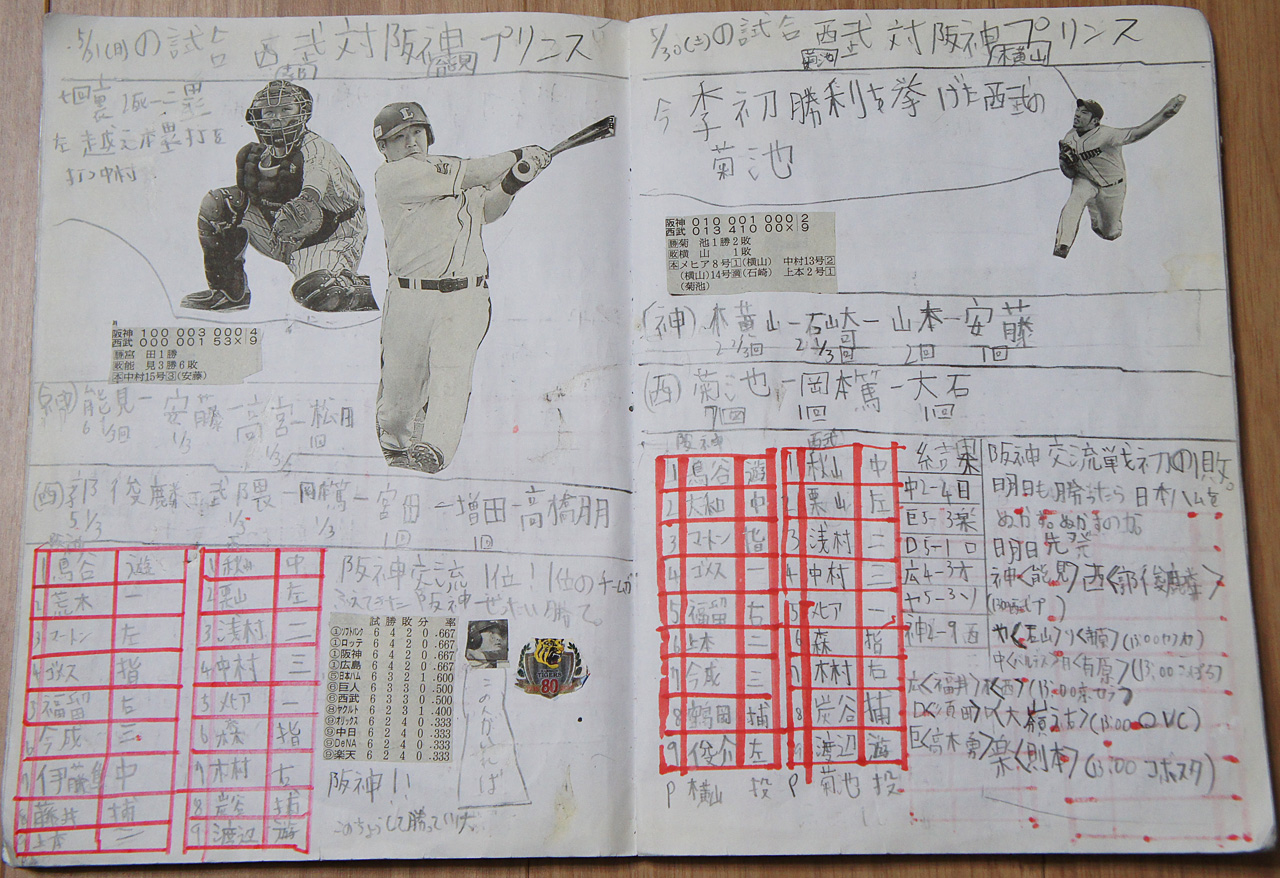 5/31(日)の試合 西武対阪神 プリンス
能見
七回裏1死一二塁
左越え本塁打を
打つ中村
阪神 100 003 000 4
西武 000 001 53× 9
勝宮田1勝
敗能見3勝6敗
本中村15号③(安藤)
(神)能見―安藤―高宮―松田
1/3 1回
(西)郭俊麟―武隈―岡本篤―宮田―増田―高橋朋
5 1/3 1/3 1/3 1回 1回
1 鳥谷 遊
2 荒木 一
3 マートン 左
4 ゴメス 指
5 福留 右
6 今成 三
7 伊藤隼 中
8 藤井 捕
9 上本 二
1 秋山 中
2 栗山 左
3 浅村 二
4 中村 三
5 メヒア 一
6 森 指
7 木村 右
8 炭谷 捕
9 渡辺 遊
阪神交流1位!1位のチームが
ふえてきた 阪神ぜったい勝て。
試勝敗分 率
①ソフトバンク 6 4 2 0 .667
①ロッテ 6 4 2 0 .667
①阪神 6 4 2 0 .667
①広島 6 4 2 0 .667
⑤日本ハム 6 3 2 1 .600
⑥巨人 6 3 3 0 .500
⑥西武 6 3 3 0 .500
⑧ヤクルト 6 2 3 1 .400
⑨オリックス 6 2 4 0 .333
⑨中日 6 2 4 0 .333
⑨DeNA 6 2 4 0 .333
⑨楽天 6 2 4 0 .333
TIGERS
80
阪神!!
このちょうしで勝っていけ。
5/30(土)の試合 西武対阪神 プリンス
菊池 横山
今季初勝利を挙げた西武の
菊池
阪神 010 001 000 2
西武 013 410 00× 9
勝菊池1勝2敗
敗横山 1敗
本メヒア8号①(横山) 中村13号②
(横山)14号満(石崎) 上本2号①
(菊池)
(神)横山―石崎―山本―安藤
2 2/3回 2 1/3回 2回 1回
(西)菊池―岡本篤―大石
7回 1回 1回
阪神 西武
1 鳥谷 遊
2 大和 中
3 マートン 指
4 ゴメス 一
5 福留 右
6 上本 二
7 今成 三
8 鶴岡 捕
9 俊介 左
P 横山 投
1 秋山 中
2 栗山 左
3 浅村 二
4 中村 三
5 メヒア 一
6 森 指
7 木村 右
8 炭谷 捕
9 渡辺 遊
P 菊池 投
結果
中2-4日
巨5-3楽
D5-1ロ
広4-3オ
ヤ5-3ソ
神2-9西
阪神交流戦初の敗。
明日も勝ったら日本ハムを
ぬかすぬかすのか
明日先発
神<能見>西<郭俊麟>
広<福井>オ<西>
巨<高木勇>楽<則本>(13:00コボスタ)